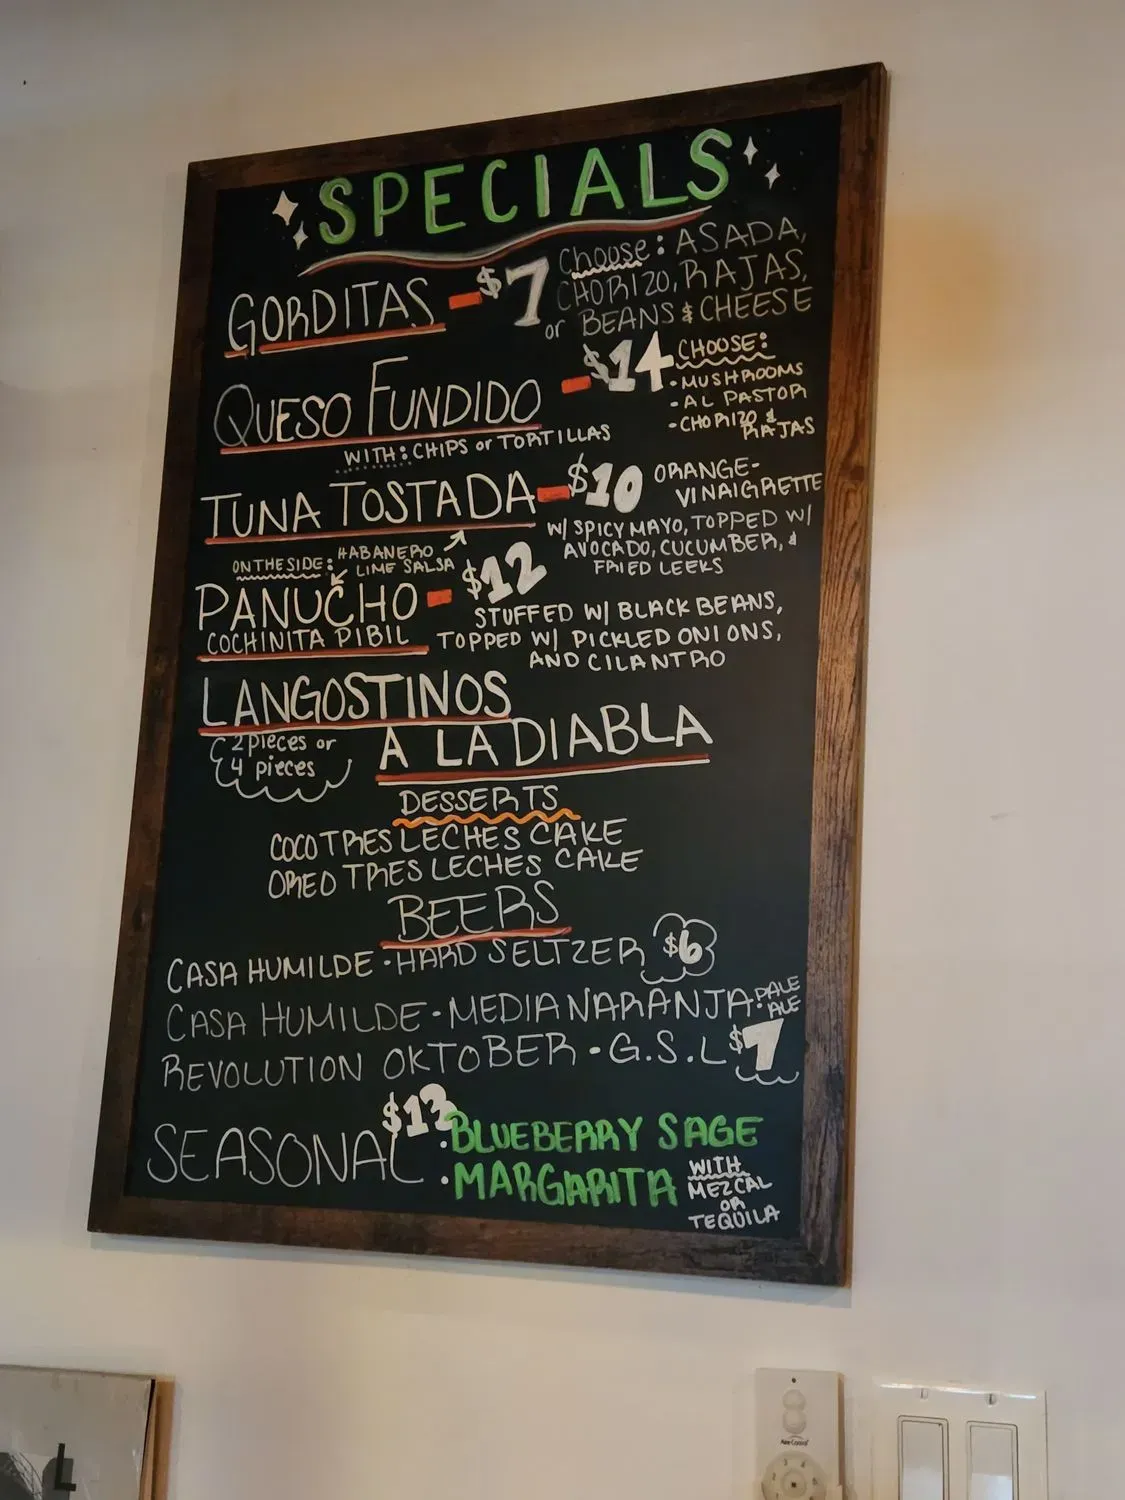 SPECIALS
GORDITAS - $7 Choose: ASADA,
CHORIZO, RAJAS,
or BEANS & CHEESE
QUESO FUNDIDO - $14 CHOOSE:
• MUSHROOMS
• AL PASTOR
• CHORIZO &
RAJAS
WITH: CHIPS or TORTILLAS
TUNA TOSTADA - $10 ORANGE-
VINAIGRETTE
W/ SPICY MAYO, TOPPED W/
AVOCADO, CUCUMBER, &
FRIED LEEKS
ON THE SIDE: HABANERO
LIME SALSA
PANUCHO - $12
COCHINITA PIBIL
STUFFED W/ BLACK BEANS,
TOPPED W/ PICKLED ONIONS,
AND CILANTRO
LANGOSTINOS
A LA DIABLA
2 pieces or
4 pieces
DESSERTS
COCO TRES LECHES CAKE
OREO TRES LECHES CAKE
BEERS
CASA HUMILDE • HARD SELTZER $6
CASA HUMILDE • MEDIA NARANJA: PALE
ALE
REVOLUTION OKTOBER • G.S.L $7
SEASONAL $13
• BLUEBERRY SAGE
• MARGARITA WITH
MEZCAL
OR
TEQUILA
L